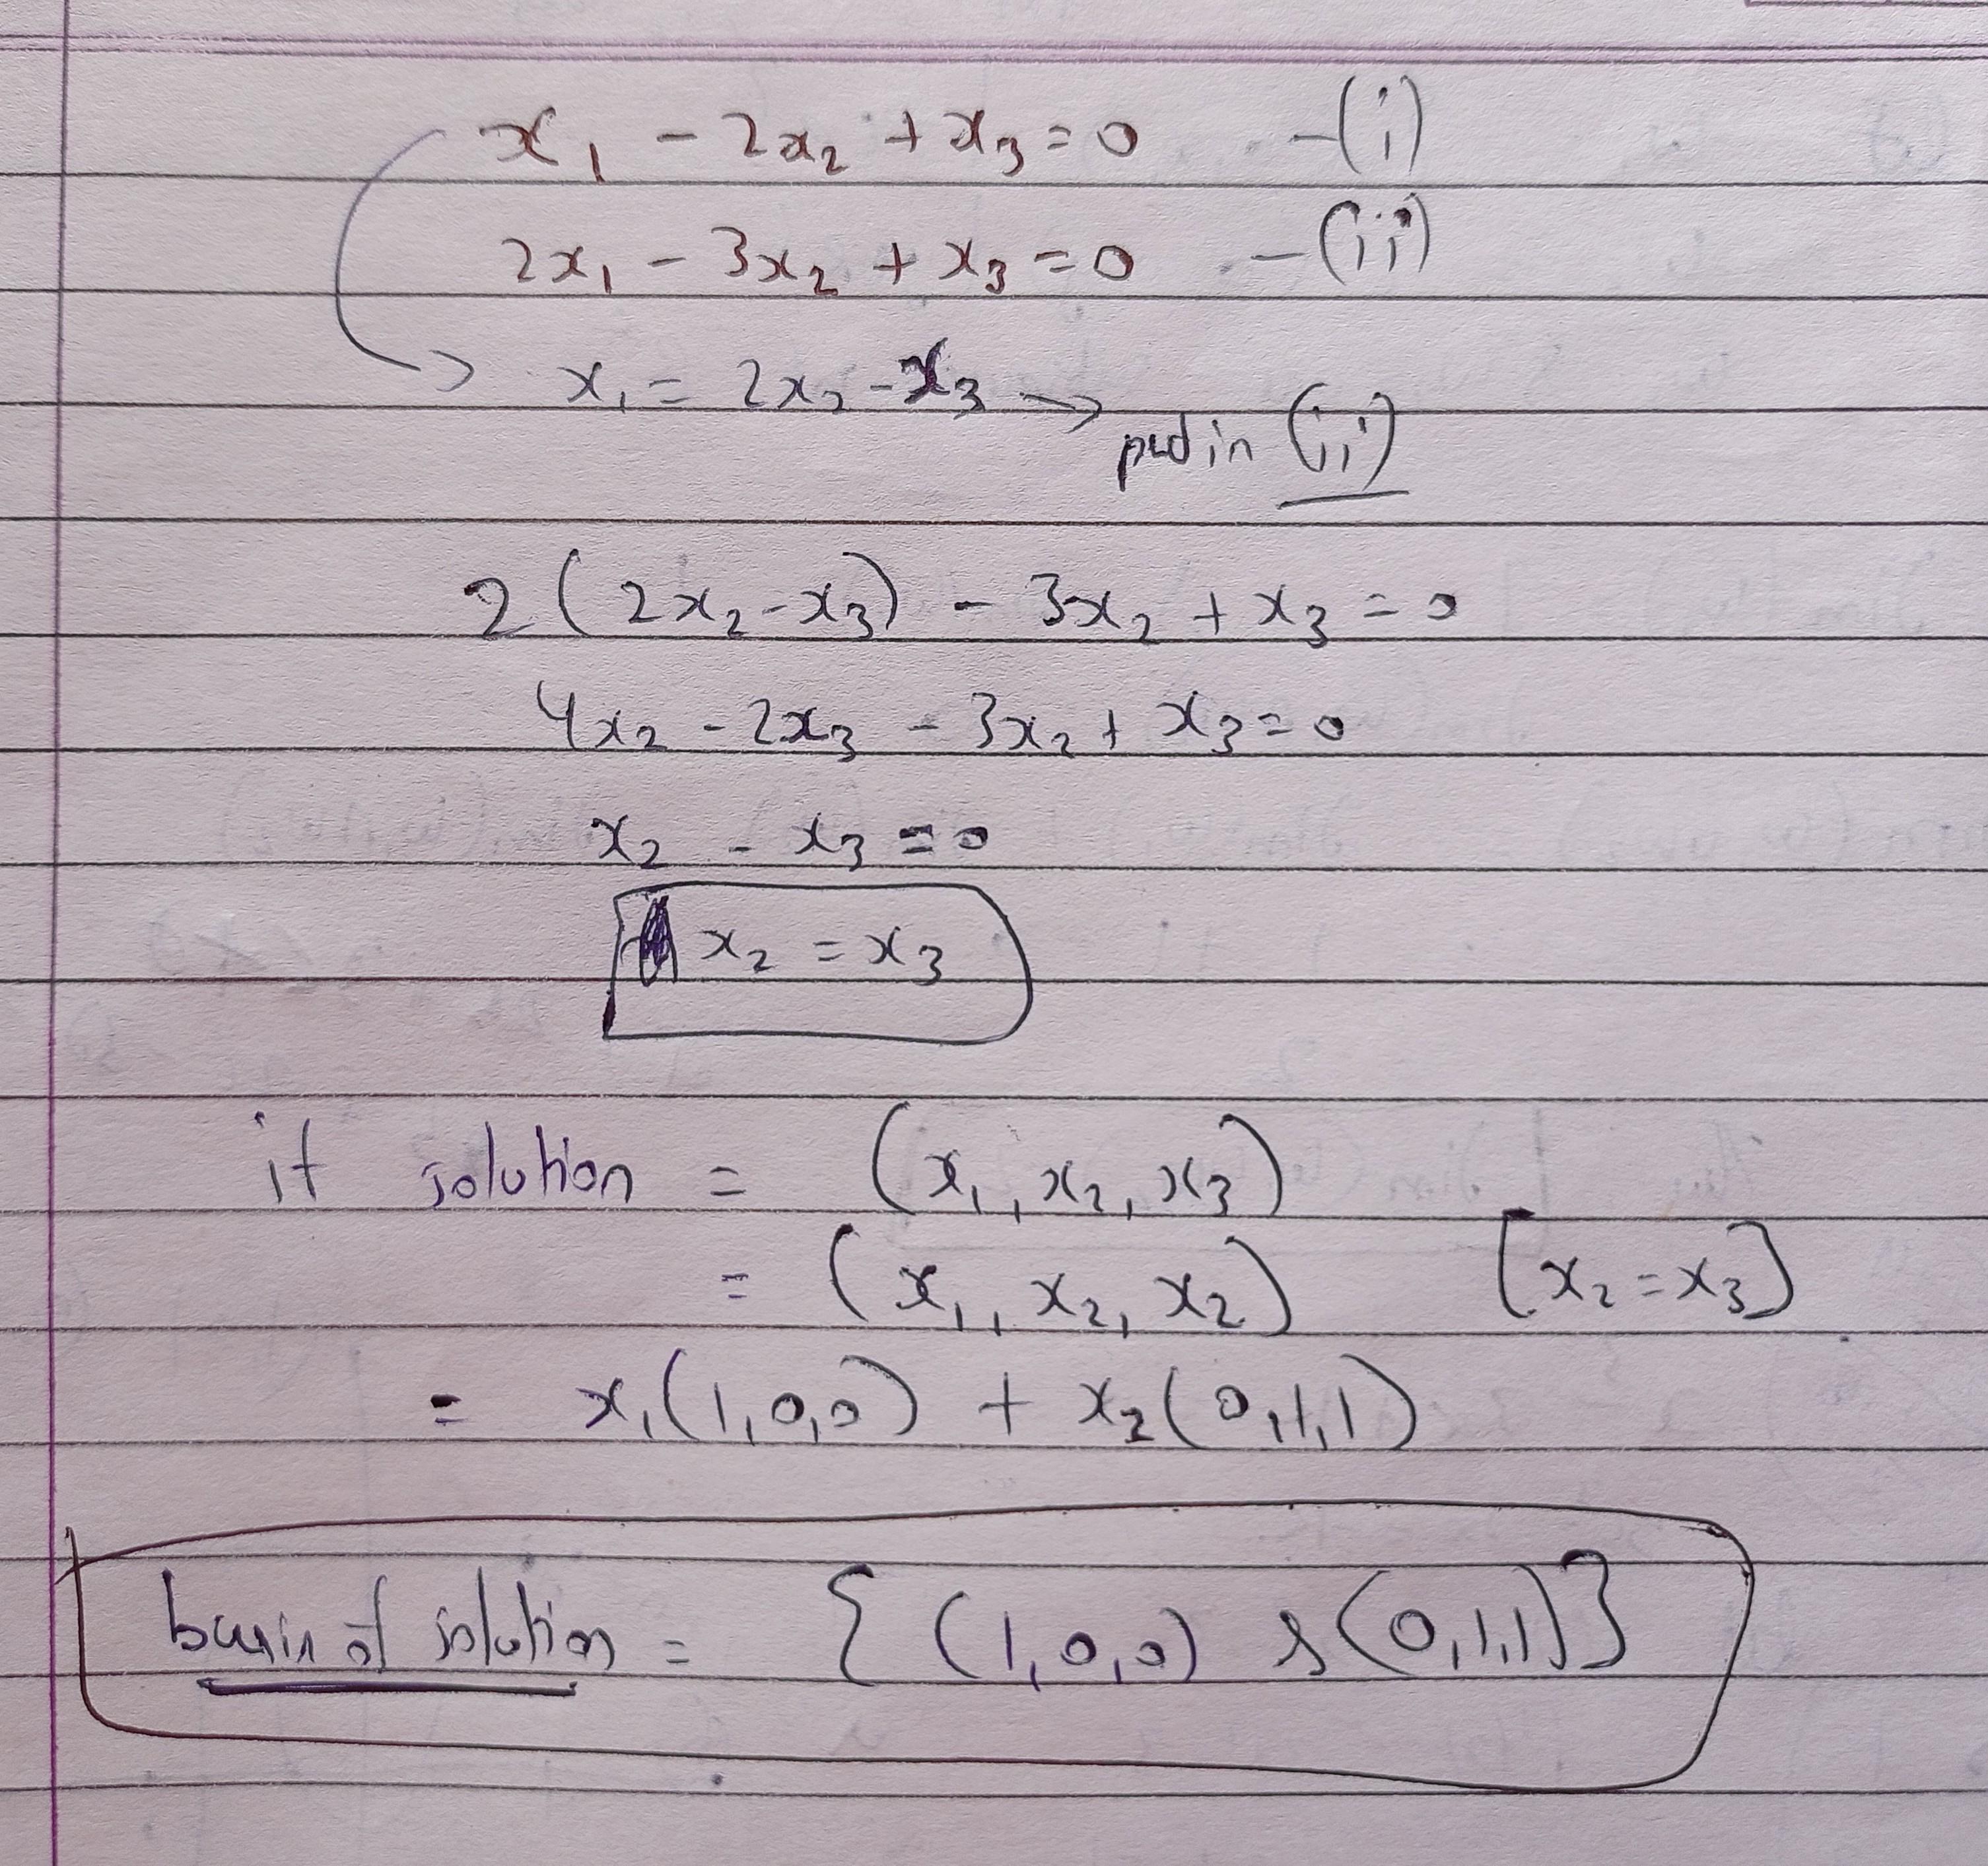 x₁ - 2x₂ + x₃ = 0 -(i)
2x₁ - 3x₂ + x₃ = 0 -(ii)
x₁ = 2x₂ - x₃ → put in (ii)
2(2x₂ - x₃) - 3x₂ + x₃ = 0
4x₂ - 2x₃ - 3x₂ + x₃ = 0
x₂ - x₃ = 0
x₂ = x₃
if solution = (x₁, x₂, x₃)
= (x₁, x₂, x₂) [x₂ = x₃]
= x₁(1,0,0) + x₂(0,1,1)
basis of solution = {(1,0,0) & (0,1,1)}